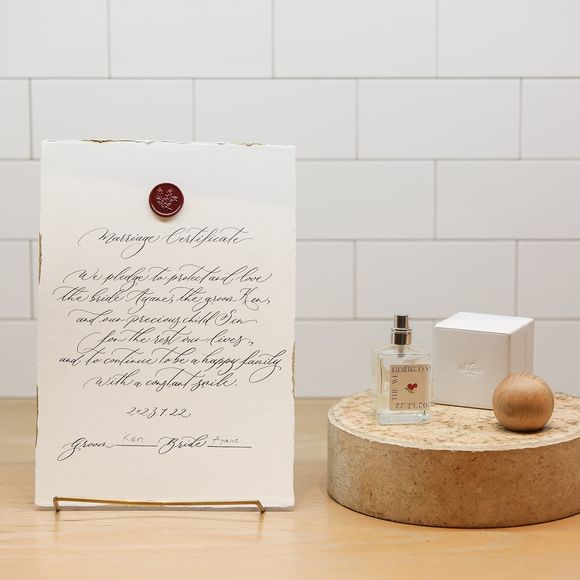 Marriage Certificate
We pledge to protect and love
the bride Ayane, the groom Ken,
and our precious child Sen
for the rest our lives,
and to continue to be a happy family
with a constant smile.
2023.7.22
Groom Ken Bride Ayane
THE WE